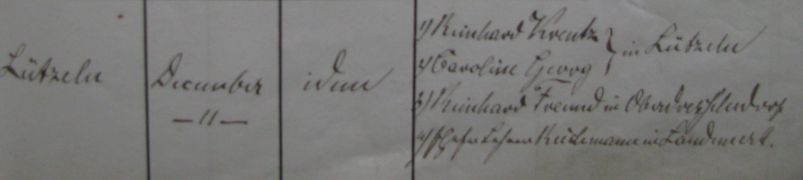 Lützeln
December
— 11 —
idem
1) Reinhard Kreutz
2) Caroline Georg } in Lützeln
3) Reinhard Freund in
4) in